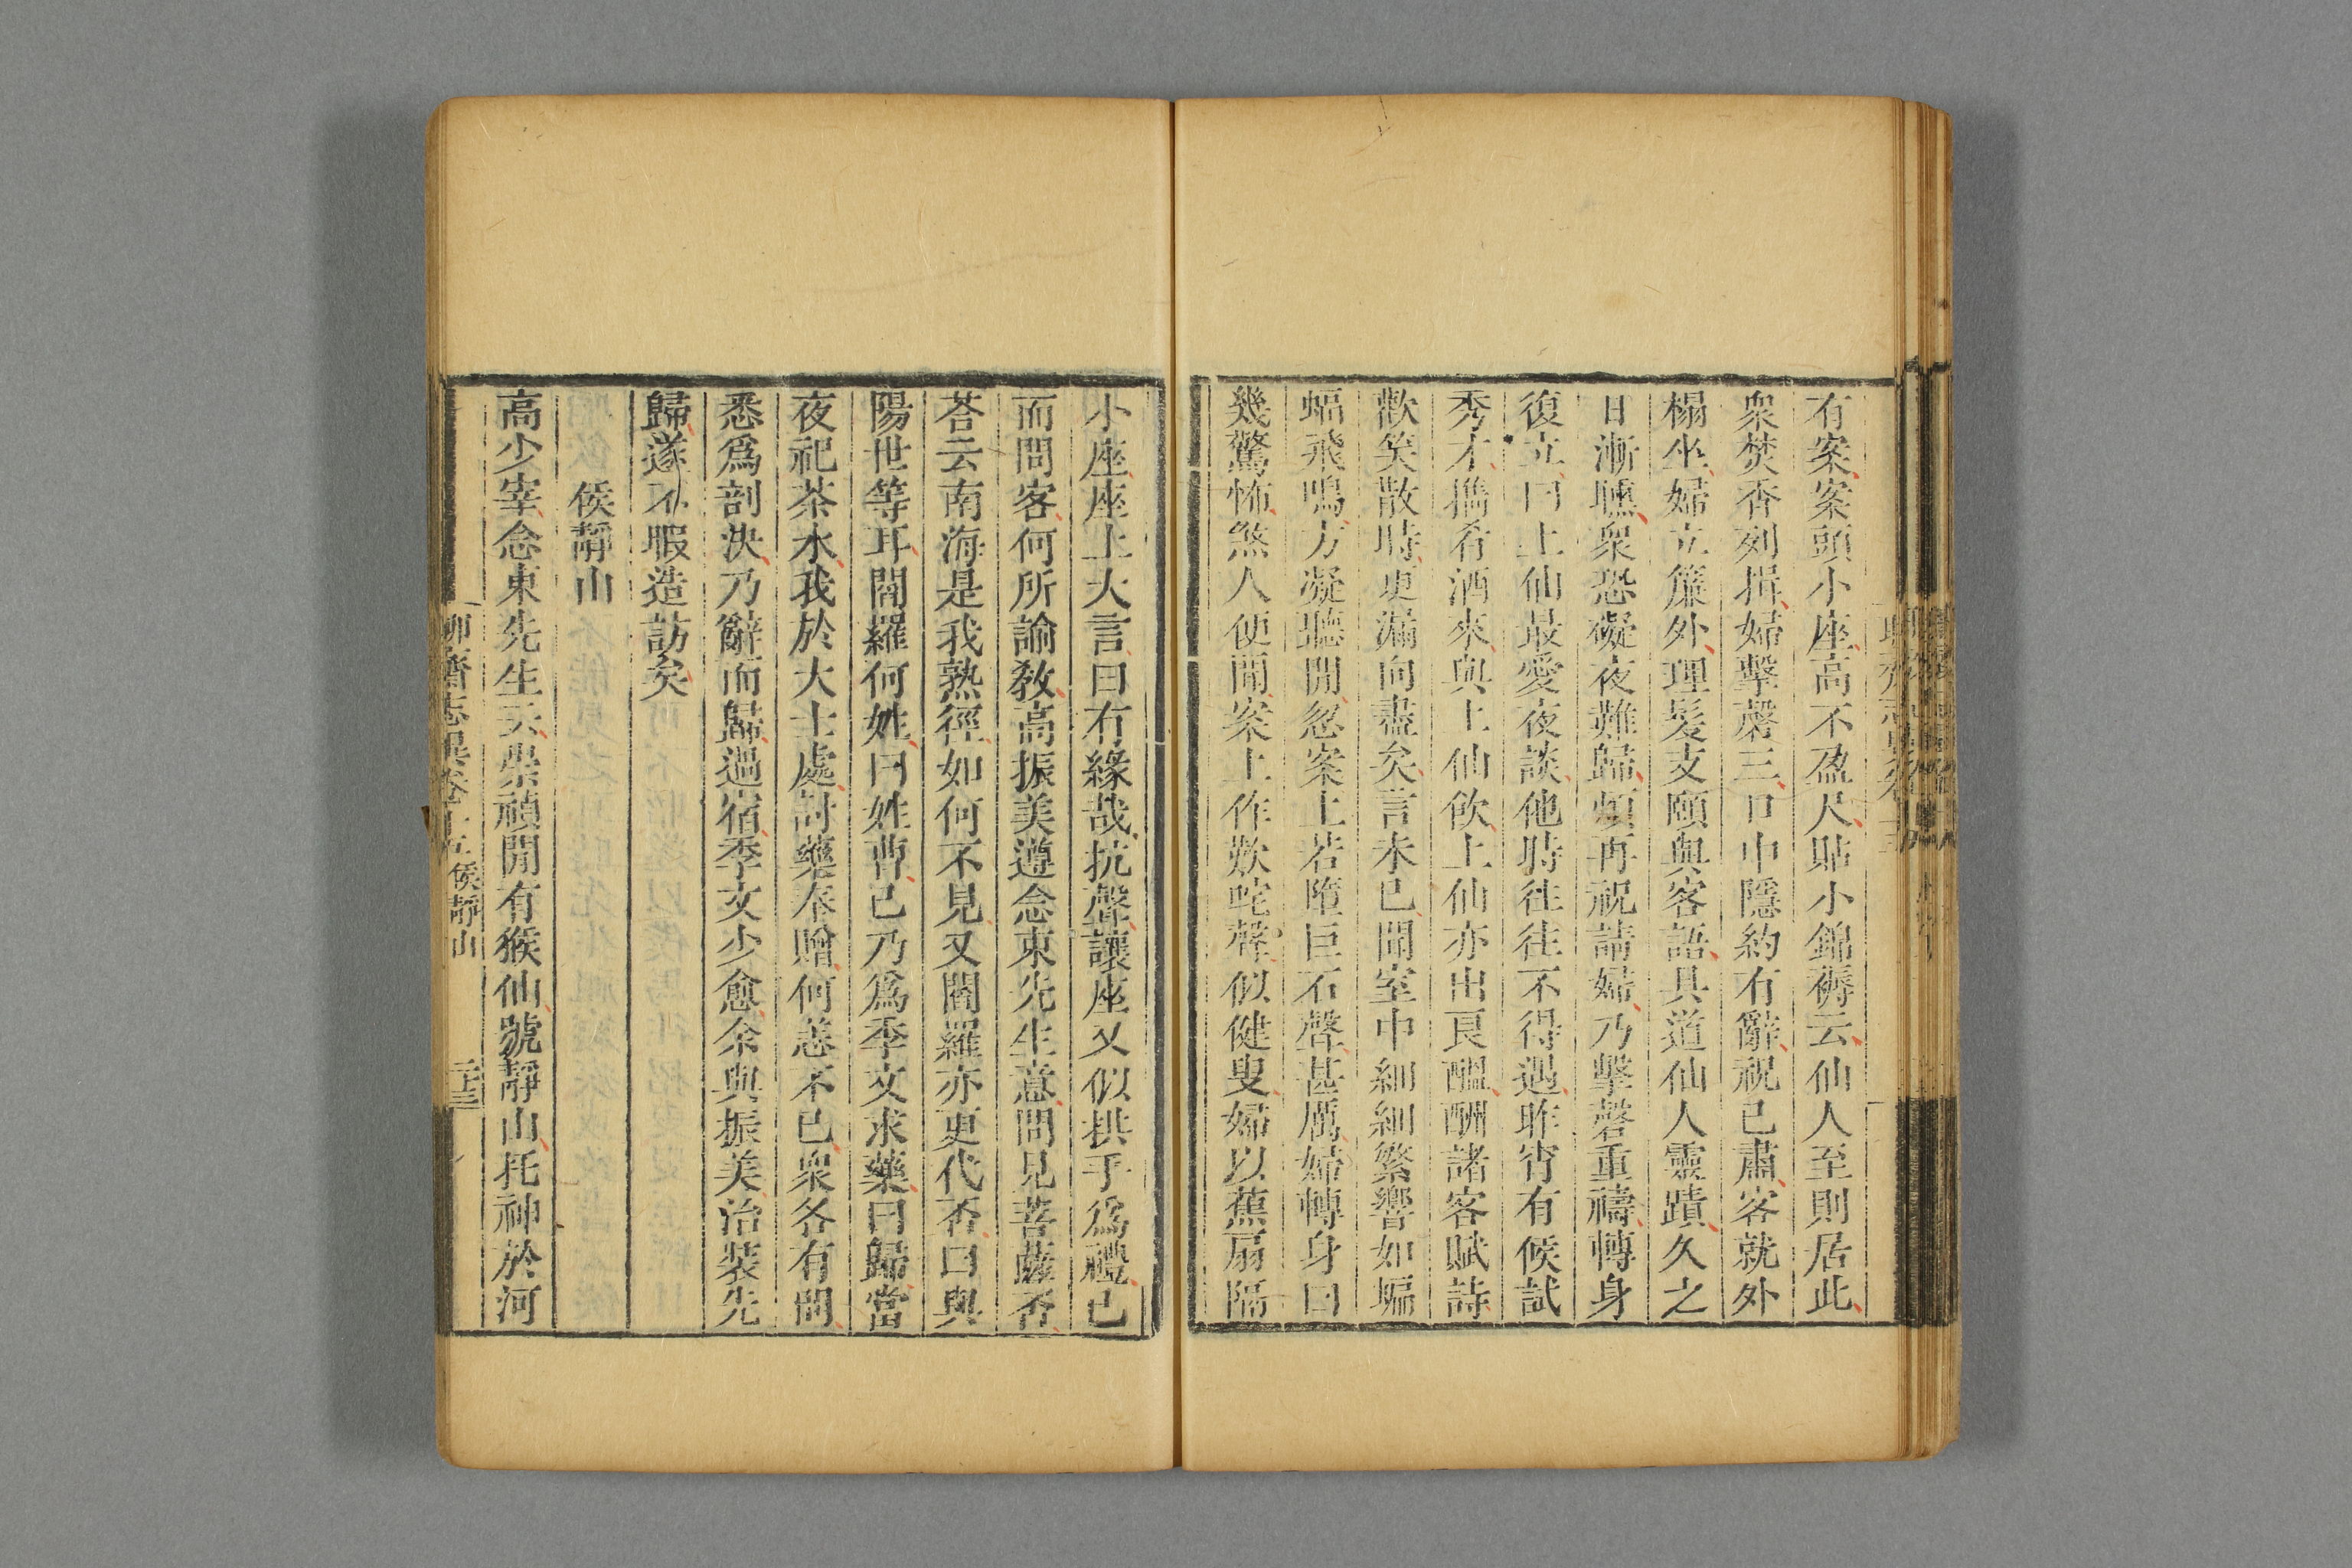 有案案頭小座高不盈尺貼小錦褥云仙人至則居此
衆焚香列揖婦擊磬三口中隱約有辭祝已肅客就外
榻坐婦立簾外理髪支頤與客語具道仙人靈蹟久之
日漸曛衆恐礙夜難歸煩再祝請婦乃擊磬重禱轉身
復立曰上仙最愛夜談他時往往不得遇昨宵有候試
秀才攜肴酒來與上仙飲上仙亦出良醞酬諸客賦詩
歡笑散時更漏向盡矣言未已聞室中細細繁響如蝙
蝠飛鳴方凝聽間忽案上若墮巨石聲甚厲婦轉身曰
幾驚怖煞人便聞案上作歎咤聲似健叟婦以蕉扇隔
小座座上大言曰有緣哉抗聲讓座又似拱手爲禮已
而問客何所諭教高振美遵念東先生意問見菩薩否
荅云南海是我熟徑如何不見又閻羅亦更代否曰與
陽世等耳閻羅何姓曰姓曹已乃爲季文求藥曰歸當
夜祀茶水我於大士處討藥奉贈何恙不已衆各有問
悉爲剖決乃辭而歸過宿季文少愈余與振美治裝先
歸遂不暇造訪矣
侯靜山
高少宰念東先生云崇禎間有猴仙號靜山托神於河
聊齋志異卷十五 侯靜山 二十三